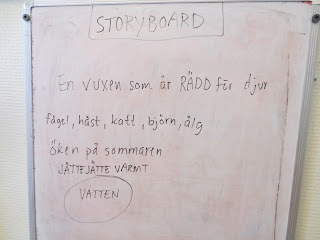 STORYBOARD
En VUXEN som är RÄDD för djur
fågel, häst, katt, björn, älg
öken på sommaren
JÄTTEJÄTTE VARMT
VATTEN